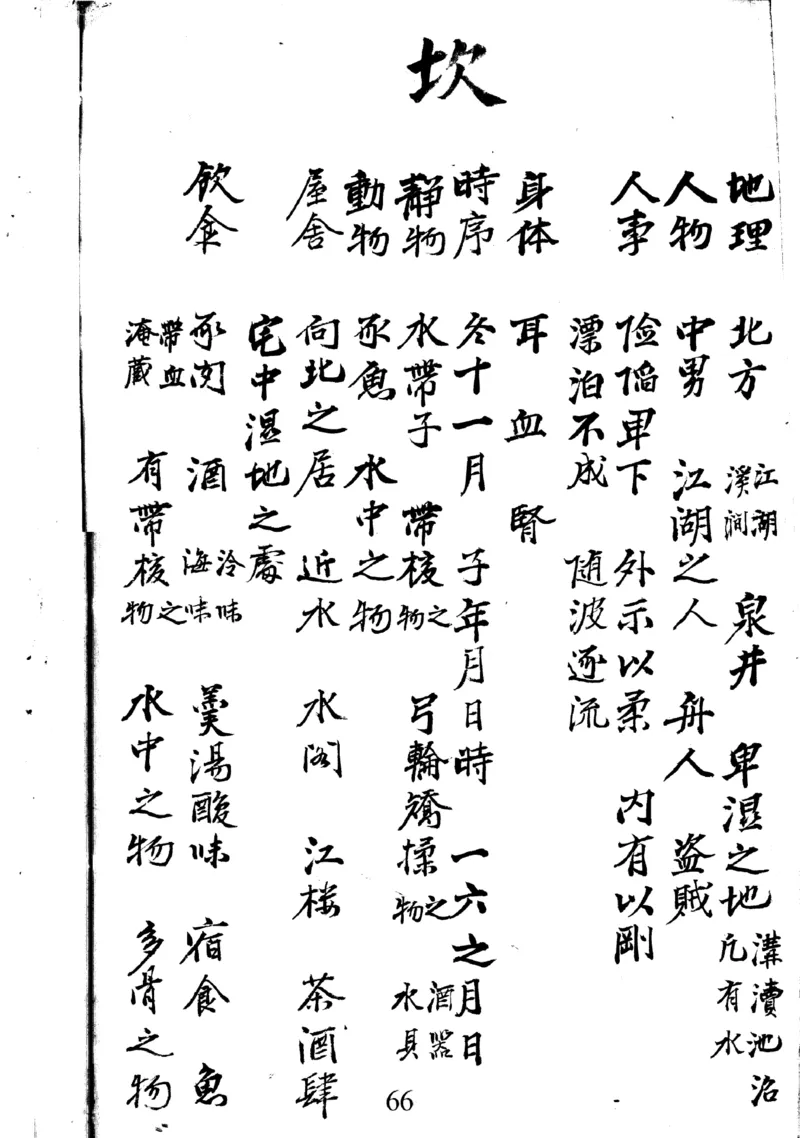 坎
地理 北方 江湖溪澗 泉井 卑湿之地 溝瀆池沼凡有水
人物 中男 江湖之人 舟人 盗贼
人事 险陷卑下 外示以柔 内有以剛
漂泊不成 随波逐流
身体 耳 血 腎
時序 冬十一月 子年月日時 一六之月日
静物 水帶子 帶核之物 弓輪矯揉之物 酒器水具
動物 豕魚 水中之物
屋舍 向北之居 近水 水阁 江楼 茶酒肆
宅中湿地之處
飲食 豕肉 酒 冷味海味 羹湯酸味 宿食 魚
帶血淹藏 有帶核之物 水中之物 多骨之物
66